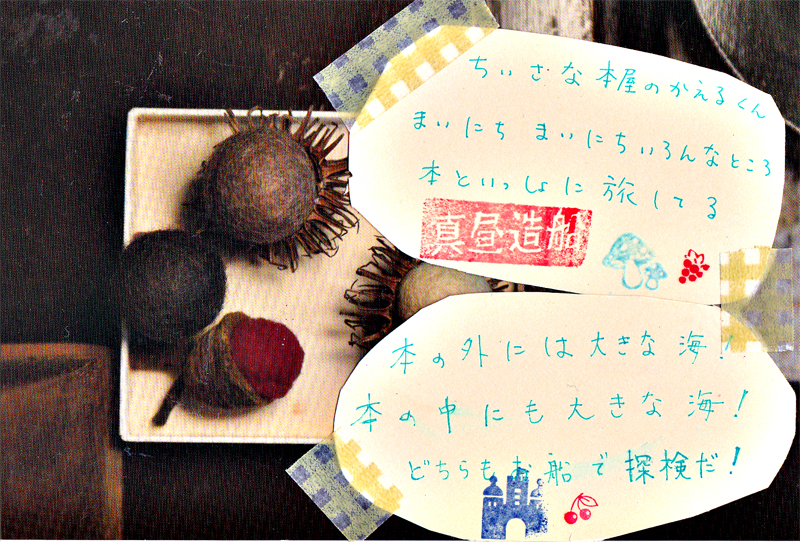 ちいさな本屋のかえるくん
まいにち まいにちいろんなところ
本といっしょに旅してる
真昼造船
本の外には大きな海!
本の中にも大きな海!
どちらもお船で探検だ!